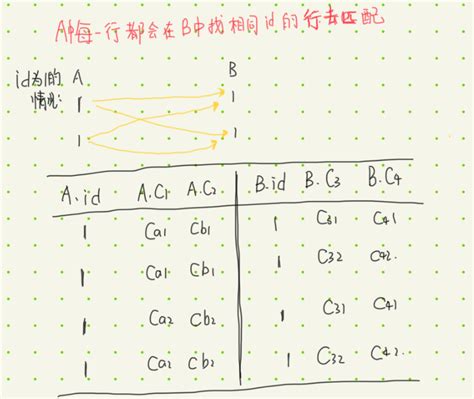 A中每一行都会在B中找相同id的行去匹配
id为1的 A B
情况: 1 1
1 1
A.id A.C1 A.C2 B.id B.C3 B.C4
1 Ca1 Cb1 1 C31 C41
1 Ca1 Cb1 1 C32 C42.
1 Ca2 Cb2 1 C31 C41
1 Ca2 Cb2 1 C32 C42.